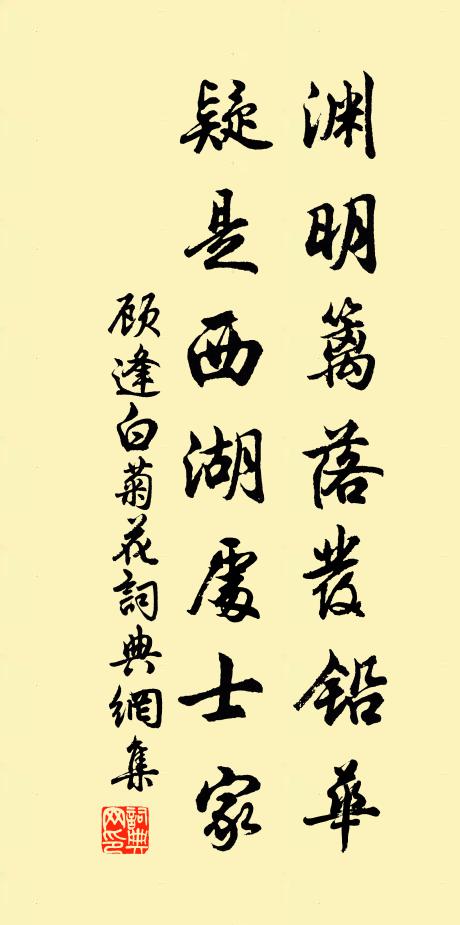 渊明篱落发铅华
疑是西湖處士家
顾逢白菊花詞典網集
詞典网印